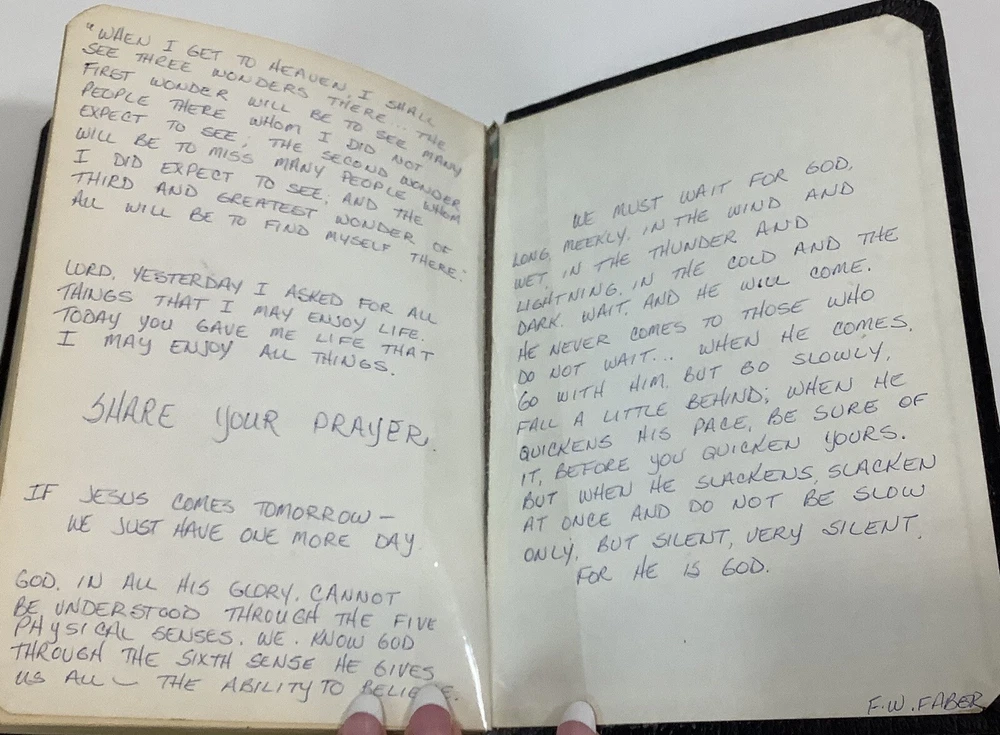 "WHEN I GET TO HEAVEN, I SHALL
SEE THREE WONDERS THERE... THE
FIRST WONDER WILL BE TO SEE MANY
PEOPLE THERE WHOM I DID NOT
EXPECT TO SEE; THE SECOND WONDER
WILL BE TO MISS MANY PEOPLE WHOM
I DID EXPECT TO SEE; AND THE
THIRD AND GREATEST WONDER OF
ALL WILL BE TO FIND MYSELF THERE."
LORD, YESTERDAY I ASKED FOR ALL
THINGS THAT I MAY ENJOY LIFE.
TODAY YOU GAVE ME LIFE THAT
I MAY ENJOY ALL THINGS.
SHARE YOUR PRAYER.
IF JESUS COMES TOMORROW —
WE JUST HAVE ONE MORE DAY.
GOD, IN ALL HIS GLORY, CANNOT
BE UNDERSTOOD THROUGH THE FIVE
PHYSICAL SENSES. WE KNOW GOD
THROUGH THE SIXTH SENSE HE GIVES
US ALL — THE ABILITY TO BELIEVE.
WE MUST WAIT FOR GOD,
LONG, MEEKLY, IN THE WIND AND
WET, IN THE THUNDER AND
LIGHTNING, IN THE COLD AND THE
DARK. WAIT, AND HE WILL COME.
HE NEVER COMES TO THOSE WHO
DO NOT WAIT... WHEN HE COMES,
GO WITH HIM, BUT GO SLOWLY,
FALL A LITTLE BEHIND; WHEN HE
QUICKENS HIS PACE, BE SURE OF
IT, BEFORE YOU QUICKEN YOURS.
BUT WHEN HE SLACKENS, SLACKEN
AT ONCE AND DO NOT BE SLOW
ONLY, BUT SILENT, VERY SILENT,
FOR HE IS GOD.
F.W. FABER